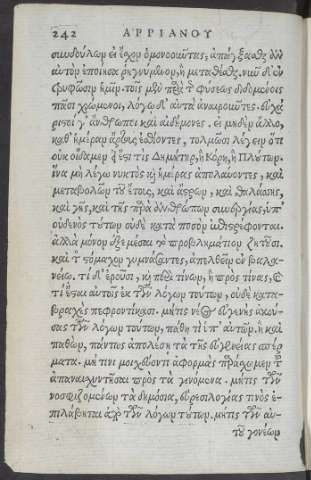 242 ΑΡΡΙΑΝΟΥ
σιωδούλων εἰ ἔχον ὁμονοοῦντας, ἀπάγξασθαι ἂν
αὐτὸν ἐποίησα, ἢ μεταθέσθαι. νῦν δ' οὖν
τρυφῶσιν ἡμῖν. τοῖς μὲν παρὰ τ φύσεως διδομένοις
πᾶσι χρώμενοι, λόγῳ δ' αὐτὰ ἀναιροῦντες. εὐχά
ριστοί γ' ἄνθρωποι καὶ αἰδήμονες. εἰ μηδὲν ἄλλο,
καθ' ἡμέραν ἄρτους ἐσθίοντες, τολμῶσι λέγειν ὅτι
οὐκ οἴδαμεν εἰ ἔστι τις Δημήτηρ, ἢ Κόρη, ἢ Πλούτων.
ἵνα μὴ λέγω νυκτὸς καὶ ἡμέρας ἀπολαύοντες, καὶ
μεταβολῶν τοῦ ἔτους, καὶ ἄστρων, καὶ θαλάσσης,
καὶ γῆς, καὶ τῆς παρὰ ἀνθρώπων συνεργίας, ὑπ'
οὐδενὸς τούτων οὐδὲ κατὰ ποσὸν ἐπιστρέφονται.
ἀλλὰ μόνον ἐξεμέσαι τὸ προβλημάτιον ζητοῦσι.
καὶ τ στόμαχον γυμνάσαντες, ἀπελθεῖν ἐν βαλα-
νείῳ. τί δ' ἐροῦσι, καὶ περὶ τίνων, ἢ πρὸς τίνας, καὶ
τί ἔσται αὐτοῖς ἐκ τῶν λόγων τούτων, οὐδὲ κατα-
βραχὺς πεφροντίκασι. μήτις νέος εὐγενὴς ἀκού-
σας τῶν λόγων τούτων, πάθῃ τὶ ὑπ' αὐτῶν. ἢ καὶ
παθὼν, πάντως ἀπολέσῃ τὰ τῆς εὐγενείας σπέρ
ματα. μή τινι μοιχεύοντι ἀφορμὰς παράσχωμεν τοῦ
ἀπαναισχυντῆσαι πρὸς τὰ γενόμενα. μήτις τῶν
νοσφιζομένων τὰ δημόσια, εὑρεσιλογίας τινὸς ἐ-
πιλάβηται ἀπὸ τῶν λόγων τούτων. μήτις τῶν αὐ-
τοῦ γονέων